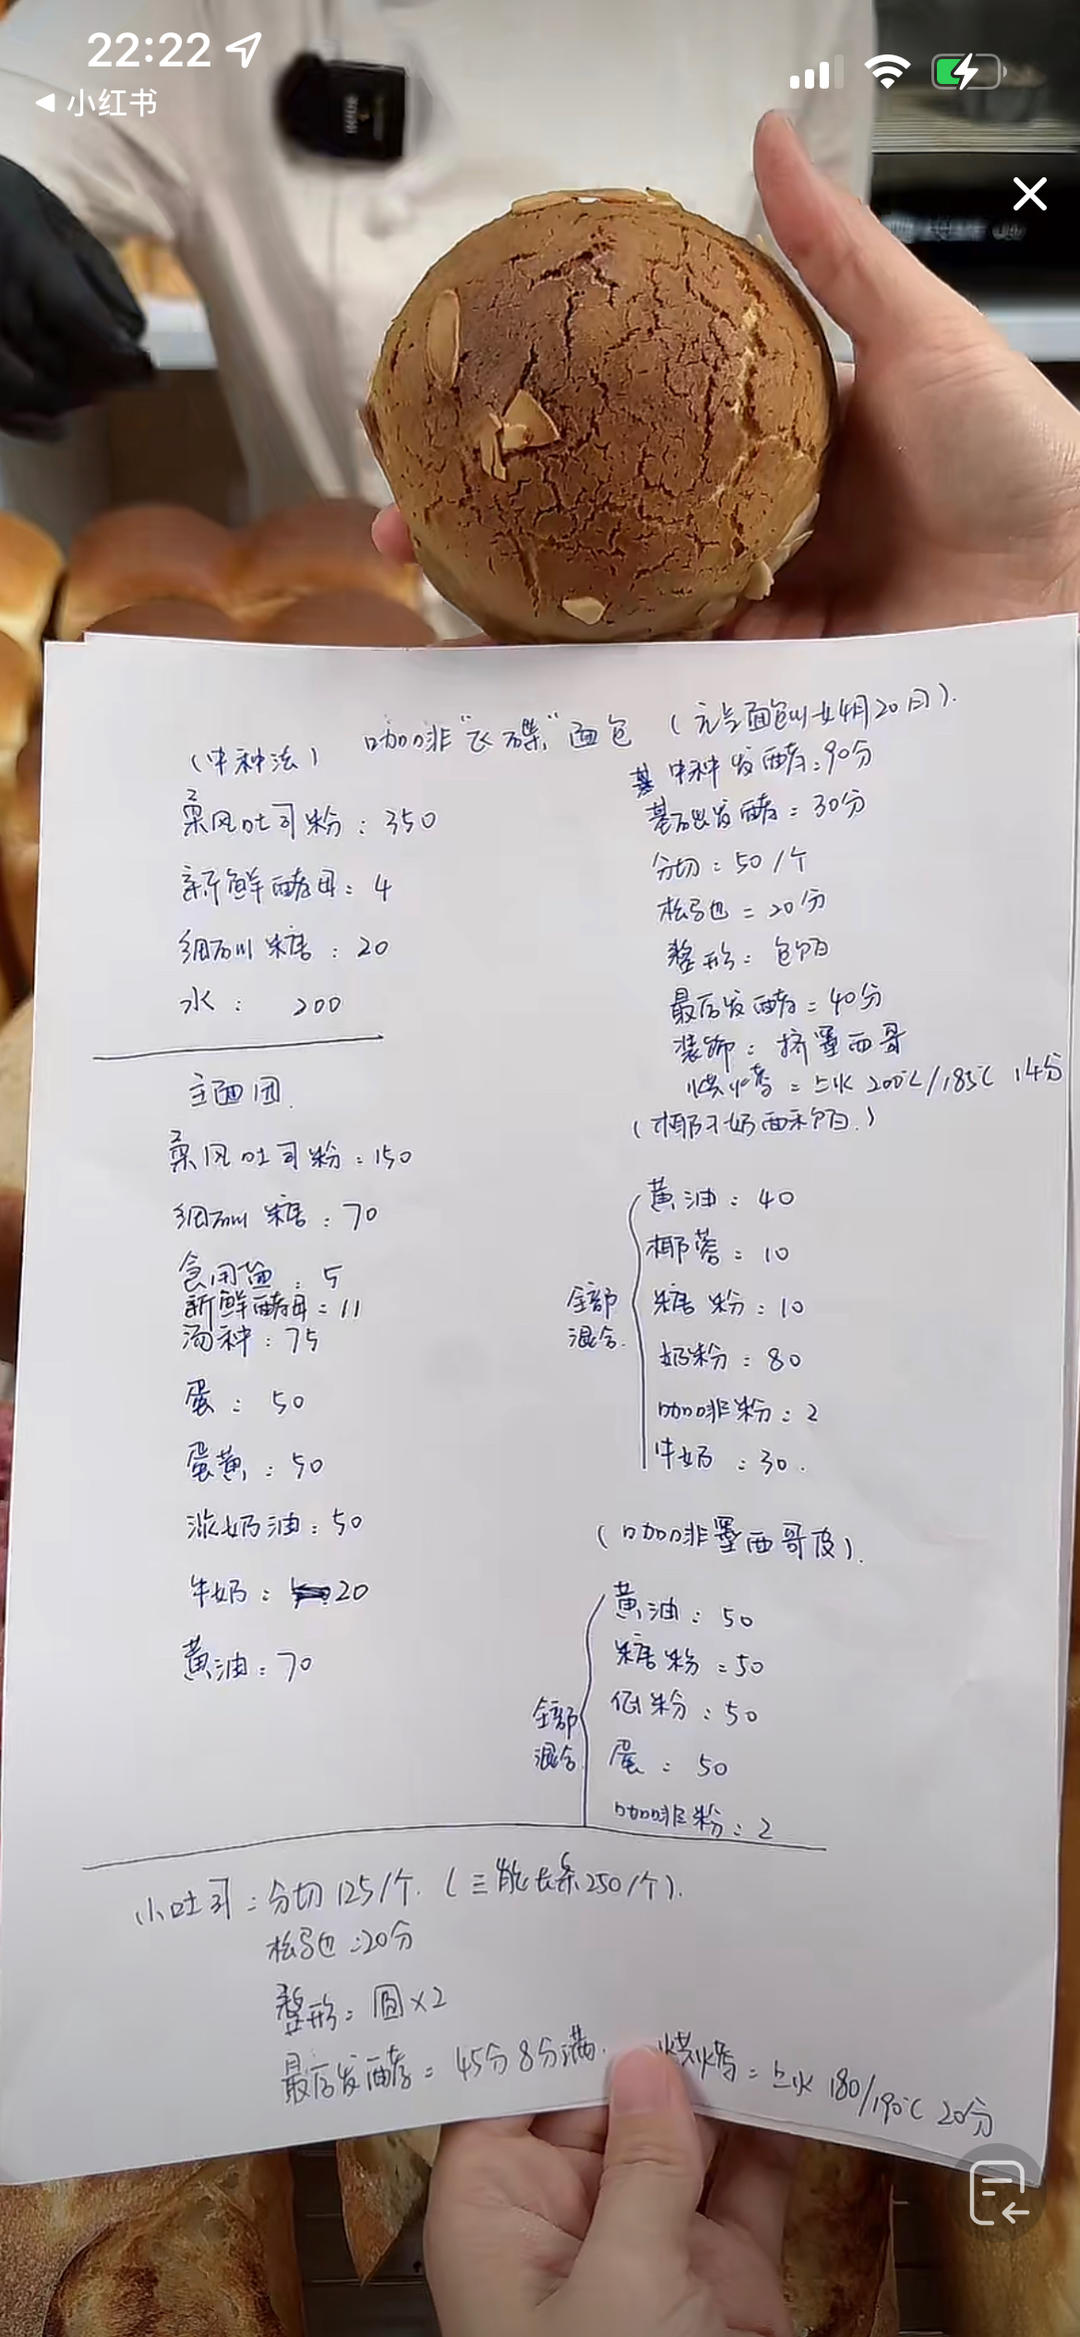 22:22
小红书
咖啡“飞碟”面包 (元气面包州女4月20日).
(中种法)
柔风吐司粉:350
新鲜酵母:4
细砂糖:20
水: 200
主面团.
柔风吐司粉:150
细砂糖:70
食用盐:5
新鲜酵母=11
汤种:75
蛋:50
蛋黄:50
淡奶油:50
牛奶:20
黄油:70
中种发酵:90分
基础发酵=30分
分切:50/个
松弛=20分
整形:包馅
最后发酵=40分
装饰:挤墨西哥
烘烤=上火200℃/185℃ 14分
(椰子奶西禾馅.)
黄油:40
椰蓉=10
糖粉:10
奶粉:80
咖啡粉:2
牛奶:30.
全部
混合.
(咖啡墨西哥皮).
黄油:50
糖粉=50
低粉:50
蛋:50
咖啡粉:2
全部
混合
小吐司=分切125/个.(三能长条250/个).
松弛:20分
整形:圆×2
最后发酵=45分8分满. 烘烤=上火180/190℃ 20分